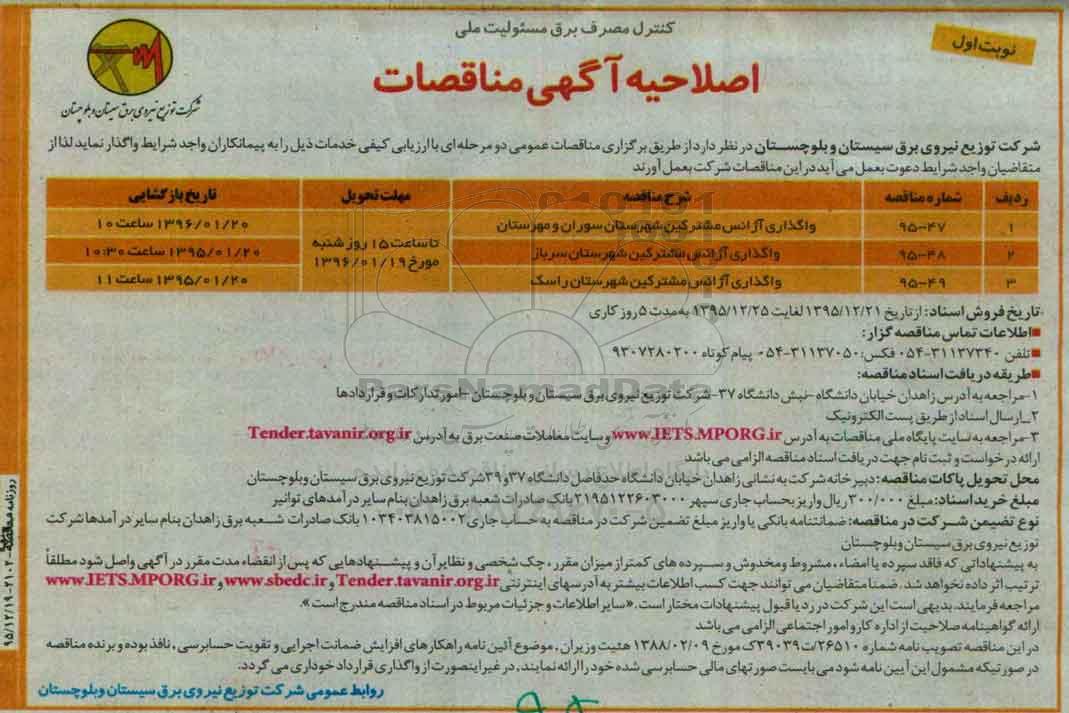 کنترل مصرف برق مسئولیت ملی
نوبت اول
اصلاحیه آگهی مناقصات
شرکت توزیع نیروی برق سیستان و بلوچستان
شرکت توزیع نیروی برق سیستان و بلوچستان در نظر دارد از طریق برگزاری مناقصات عمومی دو مرحله ای با ارزیابی کیفی خدمات ذیل را به پیمانکاران واجد شرایط واگذار نماید لذا از
متقاضیان واجد شرایط دعوت بعمل می آید در این مناقصات شرکت بعمل آورند
ردیف شماره مناقصه شرح مناقصه مهلت تحویل تاریخ بازگشایی
۱ ۹۵-۴۷ واگذاری آژانس مشترکین شهرستان سوران و مهرستان تا ساعت ۱۵ روز شنبه مورخ ۱۳۹۶/۰۱/۱۹ ۱۳۹۶/۰۱/۲۰ ساعت ۱۰
۲ ۹۵-۴۸ واگذاری آژانس مشترکین شهرستان سرباز ۱۳۹۵/۰۱/۲۰ ساعت ۱۰:۳۰
۳ ۹۵-۴۹ واگذاری آژانس مشترکین شهرستان راسک ۱۳۹۵/۰۱/۲۰ ساعت ۱۱
تاریخ فروش اسناد: از تاریخ ۱۳۹۵/۱۲/۲۱ لغایت ۱۳۹۵/۱۲/۲۵ به مدت ۵ روز کاری
■اطلاعات تماس مناقصه گزار:
■تلفن ۳۱۱۳۷۳۴۰-۰۵۴ فکس: ۳۱۱۳۷۰۵۰-۰۵۴ پیام کوتاه ۹۳۰۷۲۸۰۲۰۰
■طریقه دریافت اسناد مناقصه:
۱-مراجعه به آدرس زاهدان خیابان دانشگاه -نبش دانشگاه ۳۷-شرکت توزیع نیروی برق سیستان و بلوچستان -امور تدارکات و قراردادها
ParsNamadData
۲-ارسال اسناد از طریق پست الکترونیک
۳-مراجعه به سایت پایگاه ملی مناقصات به آدرس www.IETS.MPORG.ir و سایت معاملات صنعت برق به آدرس Tender.tavanir.org.ir
ارائه درخواست و ثبت نام جهت دریافت اسناد مناقصه الزامی می باشد
محل تحویل پاکات مناقصه: دبیرخانه شرکت به نشانی زاهدان خیابان دانشگاه حدفاصل دانشگاه ۳۷ و ۳۹ شرکت توزیع نیروی برق سیستان وبلوچستان
مبلغ خرید اسناد: مبلغ ۳۰۰/۰۰۰ ریال واریز بحساب جاری سپهر ۲۱۹۵۱۲۲۶۰۳۰۰۰ بانک صادرات شعبه برق زاهدان بنام سایر درآمدهای توانیر
نوع تضمین شرکت در مناقصه: ضمانتنامه بانکی یا واریز مبلغ تضمین شرکت در مناقصه به حساب جاری ۱۰۳۴۰۳۸۱۵۰۰۲ بانک صادرات شعبه برق زاهدان بنام سایر درآمدها شرکت
توزیع نیروی برق سیستان وبلوچستان
به پیشنهاداتی که فاقد سپرده یا امضاء ، مشروط ومخدوش و سپرده های کمتر از میزان مقرر ، چک شخصی و نظایر آن و پیشنهادهایی که پس از انقضاء مدت مقرر در آگهی واصل شود مطلقاً
ترتیب اثر داده نخواهد شد. ضمنا متقاضیان می توانند جهت کسب اطلاعات بیشتر به آدرسهای اینترنتی Tender.tavanir.org.ir و www.sbedc.ir و www.IETS.MPORG.ir
مراجعه فرمایند. بدیهی است این شرکت در رد یا قبول پیشنهادات مختار است. «سایر اطلاعات و جزئیات مربوط در اسناد مناقصه مندرج است».
ارائه گواهینامه صلاحیت از اداره کار و امور اجتماعی الزامی می باشد
در این مناقصه تصویب نامه شماره ۲۶۵۱۰/ت۳۹۰۳۹ک مورخ ۱۳۸۸/۰۲/۰۹ هئیت وزیران ، موضوع آئین نامه راهکارهای افزایش ضمانت اجرایی و تقویت حسابرسی ، نافذ بوده و برنده مناقصه
در صورتیکه مشمول این آیین نامه شود می بایست صورتهای مالی حسابرسی شده خود را ارائه نمایند، در غیر اینصورت از واگذاری قرارداد خودداری می گردد.
روابط عمومی شرکت توزیع نیروی برق سیستان وبلوچستان